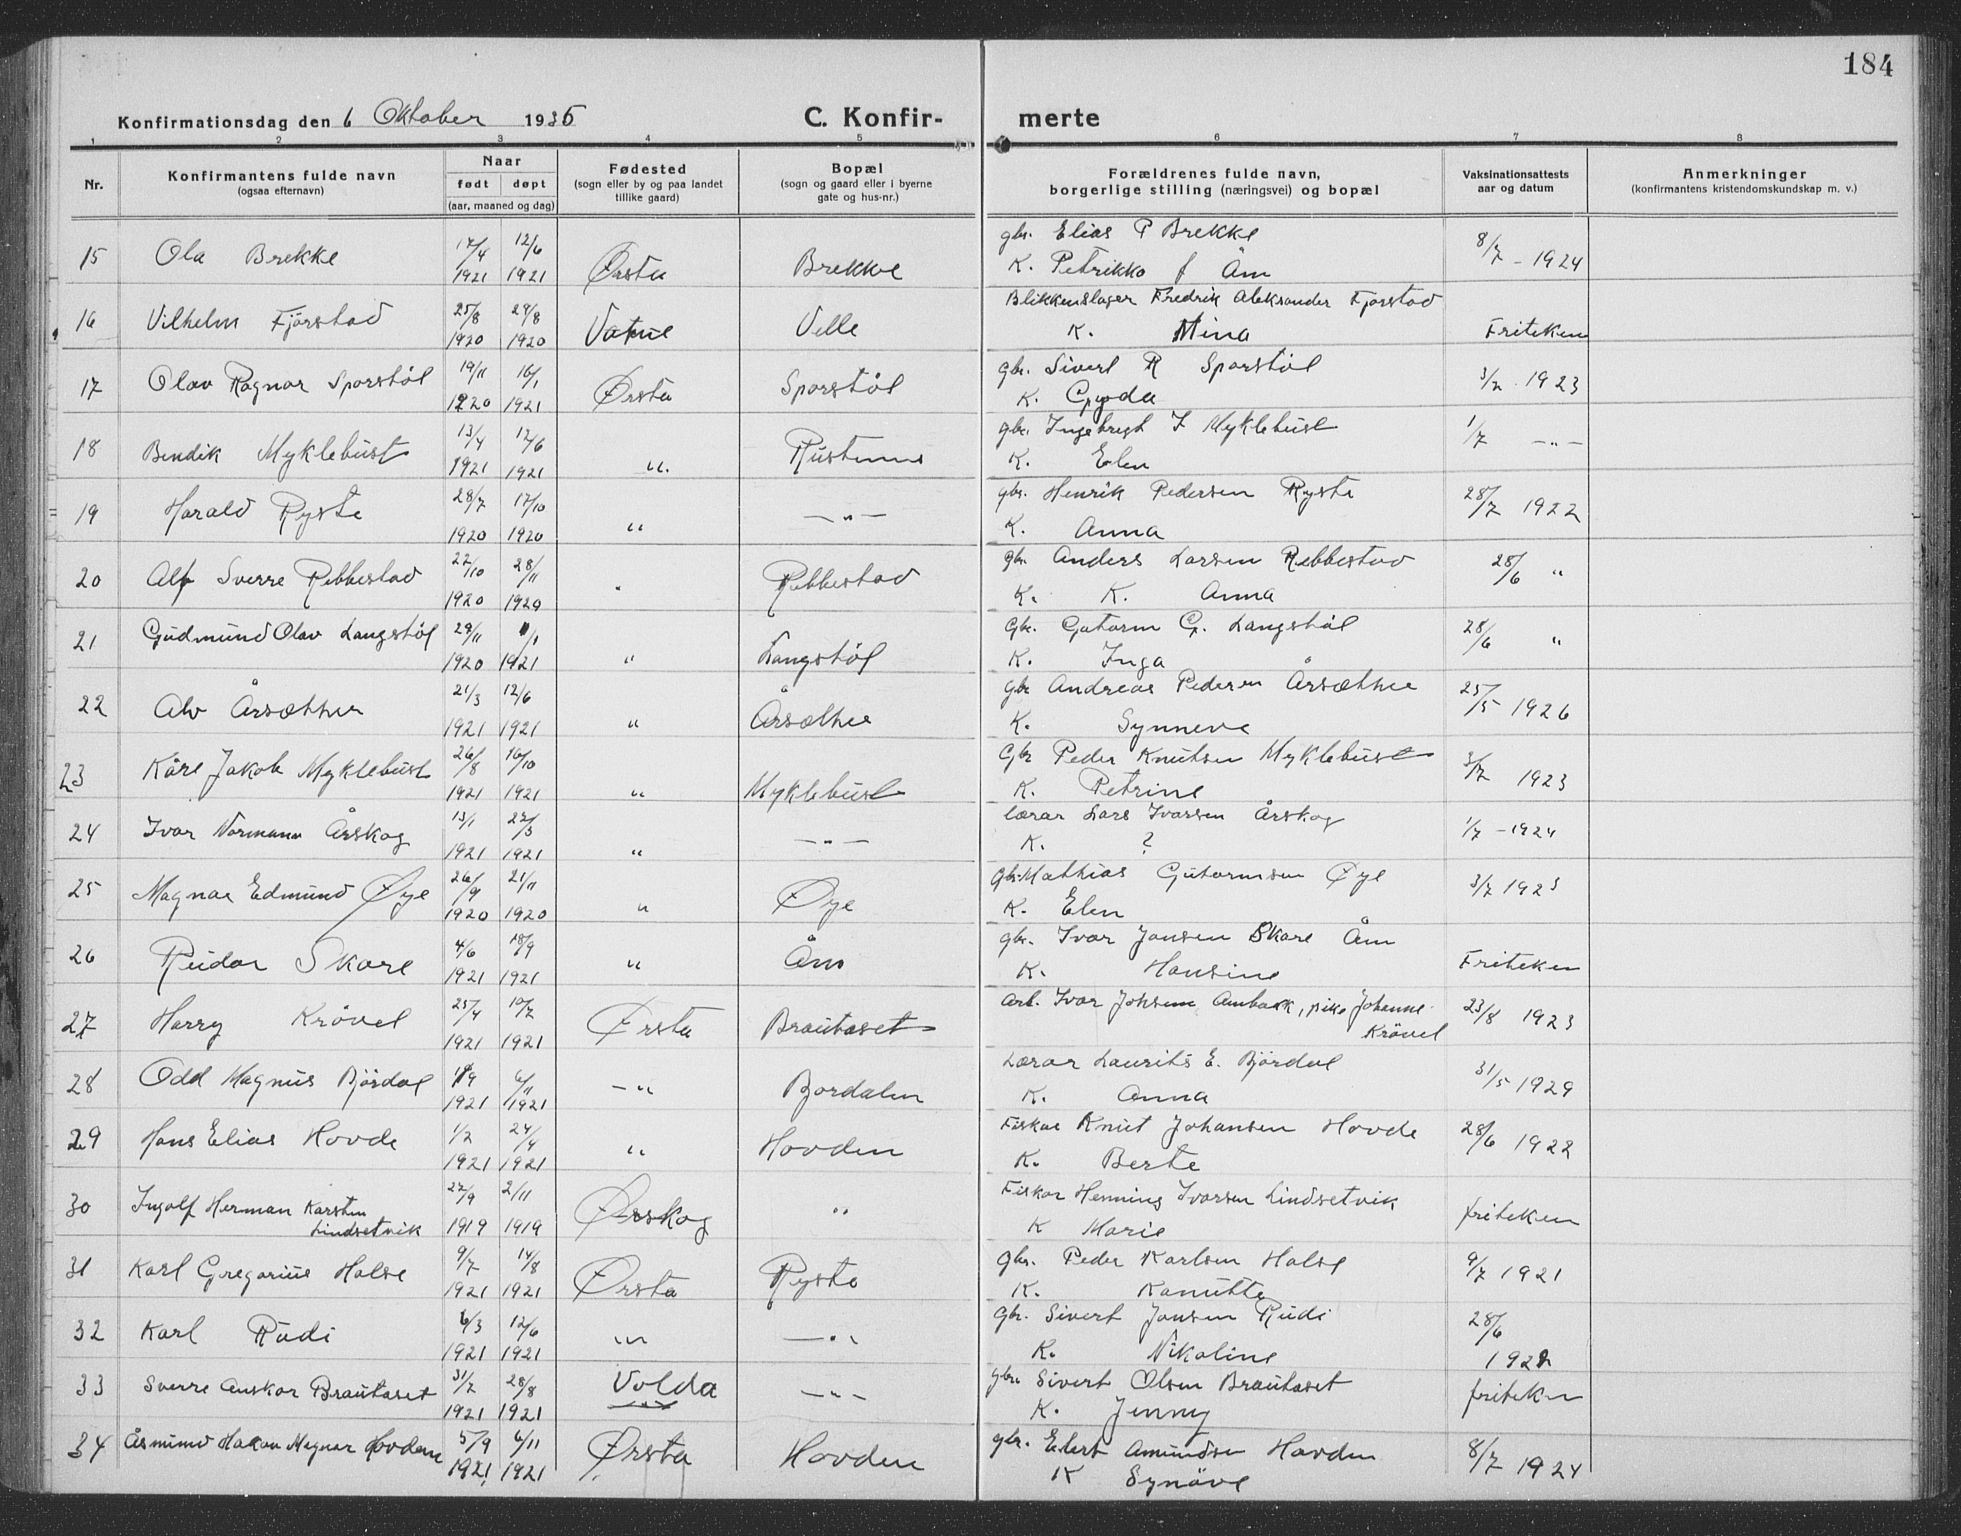 184
Konfirmationsdag den 6 Oktober 1935 C. Konfir- merte
1 2 3 4 5 6 7 8
Nr. Konfirmantens fulde navn (ogsaa efternavn) Naar født døpt (aar, maaned og dag) Fødested (sogn eller by og paa landet tillike gaard) Bopæl (sogn og gaard eller i byerne gate og hus-nr.) Forældrenes fulde navn, borgerlige stilling (næringsvei) og bopæl Vaksinationsattests aar og datum Anmerkninger (konfirmantens kristendomskundskap m. v.)
15 Ola Brekke 17/4 1921 12/6 1921 Ørsta Brekke gbr. Elias P Brekke K. Petrikke f Åm 8/7 - 1924
16 Vilhelm Fjørstad 25/8 1920 29/8 1920 Vatne Velle Blikkenslager Fredrik Aleksander Fjørstad K. Mina Friteken
17 Olav Ragnar Sporstøl 19/11 1920 16/1 1921 Ørsta Sporstøl gbr. Sivert R Sporstøl K. Gyda 3/7 . 1923
18 Bendik Myklebust 13/4 1921 12/6 1921 " Rustene gbr. Ingebregt I Myklebust K. Elen 1/7 - " -
19 Harald Ryste 28/7 1920 17/10 1920 " - " - gbr. Henrik Pedersen Ryste K. Anna 28/7 1922
20 Alf Sverre Rebbestad 22/10 1920 28/11 1920 " Rebbestad gbr. Anders Larsen Rebbestad K. K. Anna 28/6 "
21 Gudmund Olav Langstøl 29/11 1920 1/1 1921 " Langstøl Gbr. Gutorm G. Langstøl K. Inga 28/6 "
22 Alv Årsæther 21/3 1921 12/6 1921 " Årsæther gbr Andreas Pedersen Årsæther K. Synneve 25/5 1926
23 Kåre Jakob Myklebust 26/8 1921 16/10 1921 " Myklebust Gbr Peder Knutsen Myklebust K. Petrine 3/7 1923
24 Ivar Normann Årskog 13/1 1921 27/3 1921 " - " - lærar Lars Ivarsen Årskog K. ? 1/7 - 1924
25 Magnar Edmund Øye 26/9 1920 21/11 1920 " Øye gbr. Mathias Gutormsen Øye K. Elen 3/7 1923
26 Reidar Skare 4/6 1921 18/9 1921 " Åm gbr. Ivar Jansen Skare Åm K. Hansine Friteken
27 Harry Krøvel 25/4 1921 10/7 1921 Ørsta Brautaset Arb. Ivar Johsen Ambakk, pike Johanne Krøvel 23/8 1923
28 Odd Magnus Bjørdal 1921 6/11 1921 - " Bjordalen Lærar Laurits E. Bjørdal K. Anna 31/5 1929
29 Hans Elias Hovde 1/2 1921 24/4 1921 " Hovden Fiskar Knut Johansen Hovde K. Berte 28/6 1922
30 Ingolf Herman Karsten Lindsetvik 27/9 1919 2/11 1919 Ørskog " Fiskar Henning Ivarsen Lindsetvik K Marie friteken
31 Karl Gregorius Halse 9/7 1921 14/8 1921 Ørsta Ryste gbr. Peder Karlsen Halse K. Kanutte 9/7 1921
32 Karl Rudi 6/3 1921 12/6 1921 " - " gbr. Sivert Jansen Rudi K. Nikoline 28/6 1922
33 Sverre Anskar Brautaset 31/7 1921 28/8 1921 Volda - " - gbr. Sivert Olsen Brautaset K. Jenny friteken
34 Åsmund Hakon Magnar Hovdene 5/9 1921 6/11 1921 Ørsta Hovden gbr. Elert Amundsen Hovden K Synøve 8/7 1924